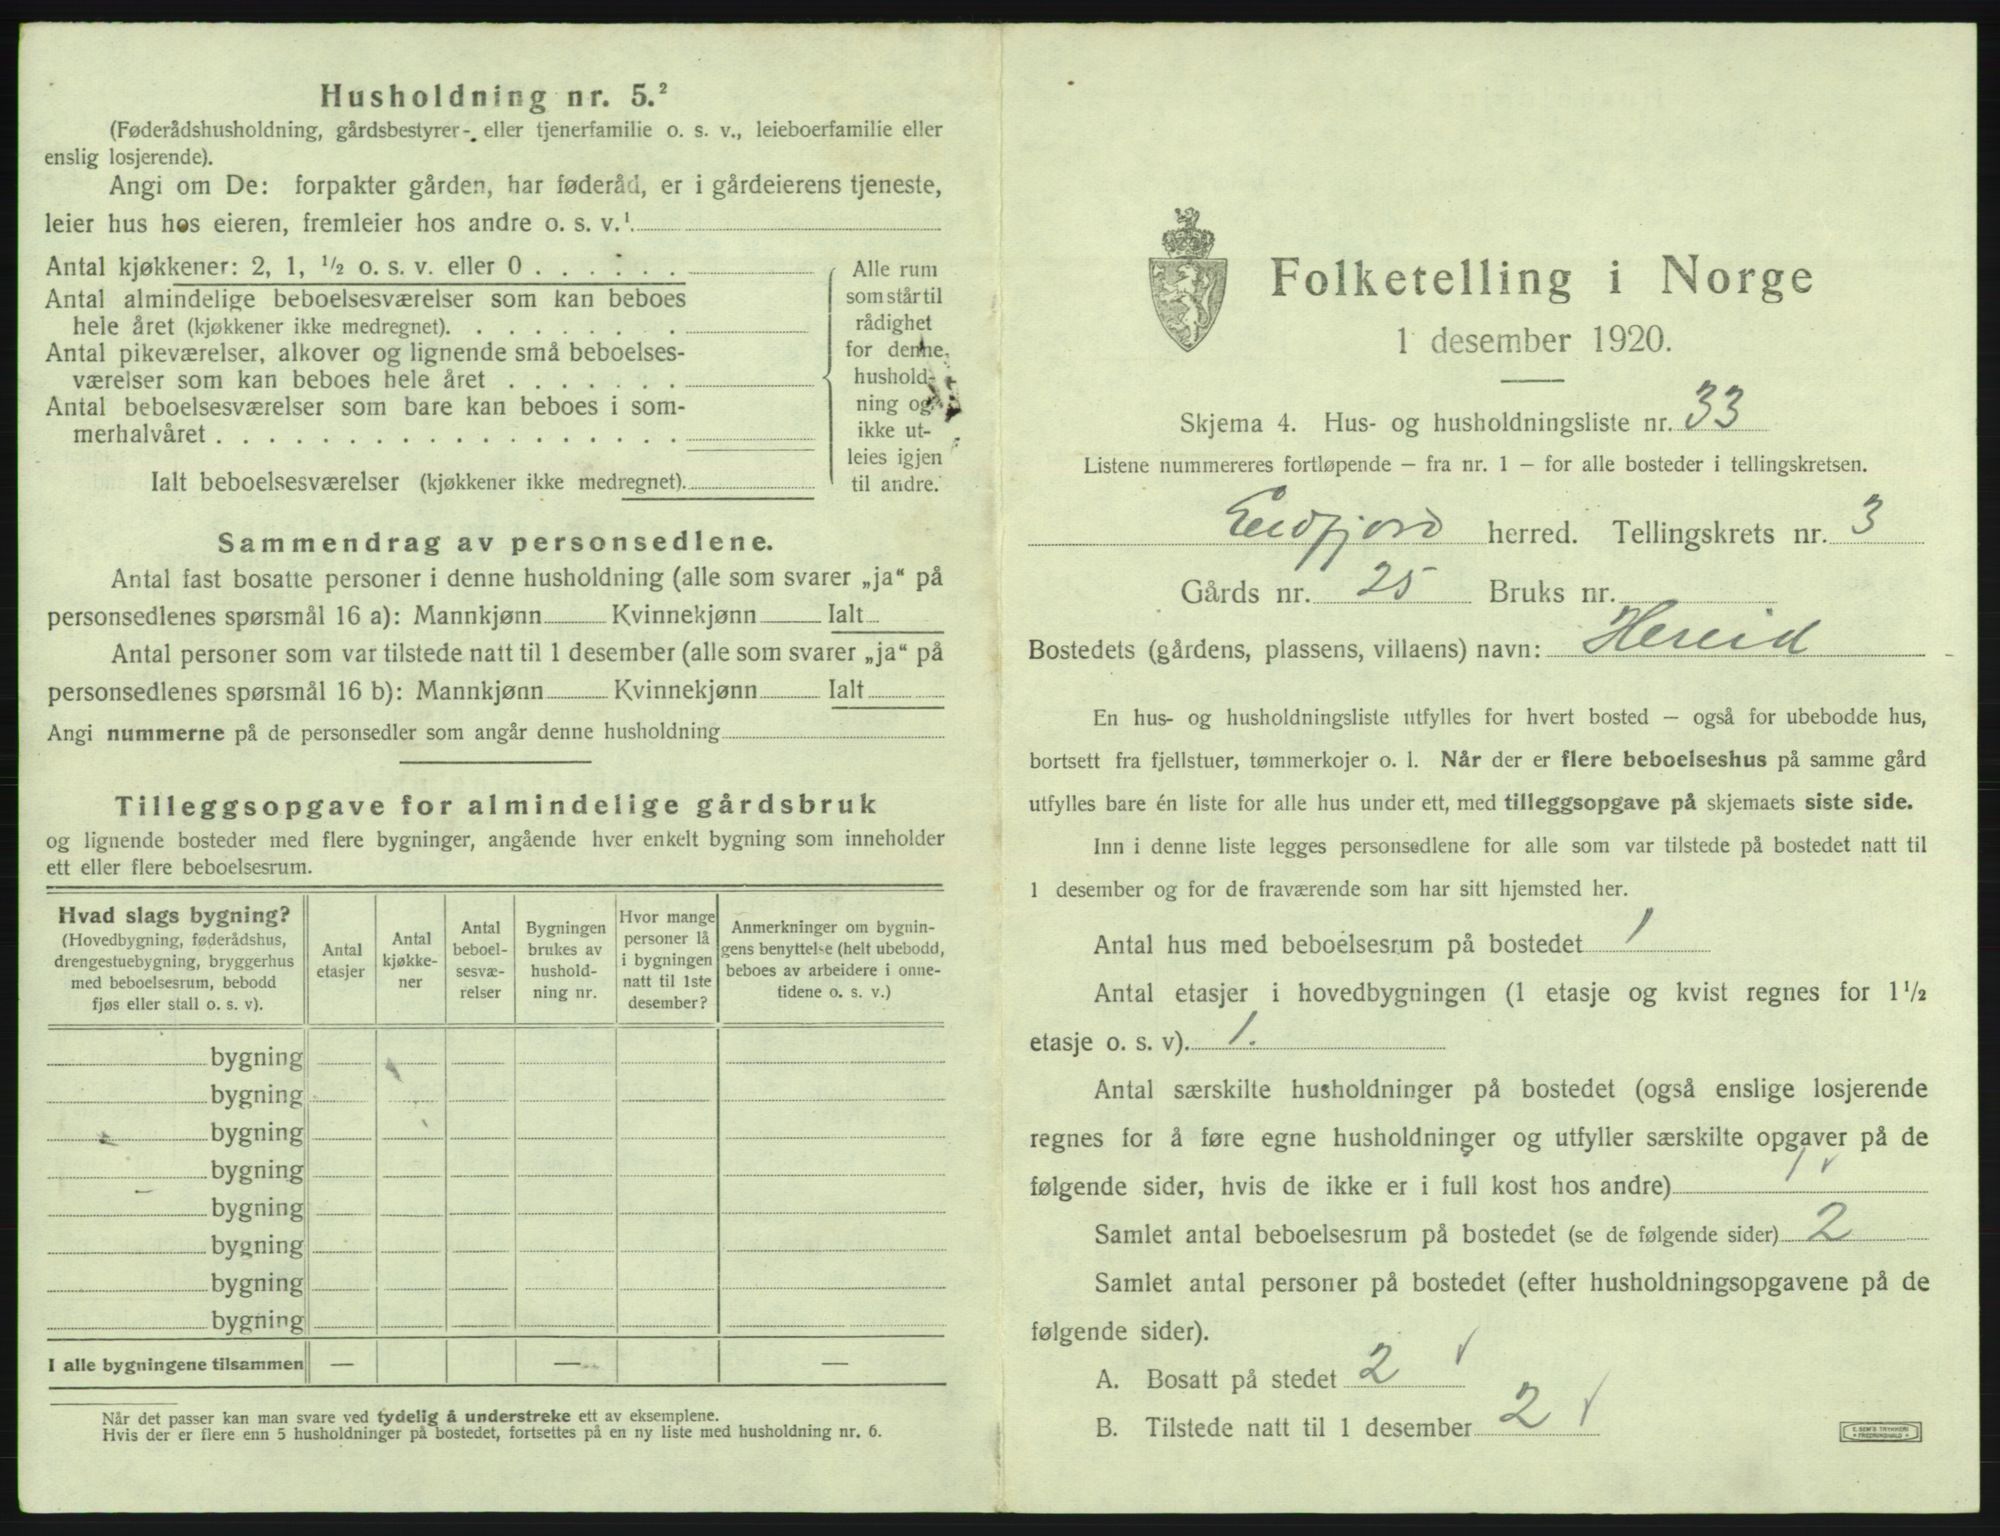 Husholdning nr. 5.²
(Føderådshusholdning, gårdsbestyrer- eller tjenerfamilie o. s. v., leieboerfamilie eller
enslig losjerende).
Angi om De: forpakter gården, har føderåd, er i gårdeierens tjeneste,
leier hus hos eieren, fremleier hos andre o. s. v.¹
Antal kjøkkener: 2, 1, ½ o. s. v. eller 0 . . . . . .
Antal almindelige beboelsesværelser som kan beboes
hele året (kjøkkener ikke medregnet). . . . . . . . .
Antal pikeværelser, alkover og lignende små beboelses-
værelser som kan beboes hele året . . . . . . .
Antal beboelsesværelser som bare kan beboes i som-
merhalvåret . . . . . . . . . . . . . . . . . .
Ialt beboelsesværelser (kjøkkener ikke medregnet).
Alle rum
som står til
rådighet
for denne
hushold-
ning og
ikke ut-
leies igjen
til andre.
Sammendrag av personsedlene.
Antal fast bosatte personer i denne husholdning (alle som svarer „ja“ på
personsedlenes spørsmål 16 a): Mannkjønn Kvinnekjønn Ialt
Antal personer som var tilstede natt til 1 desember (alle som svarer „ja“ på
personsedlenes spørsmål 16 b): Mannkjønn Kvinnekjønn Ialt
Angi nummerne på de personsedler som angår denne husholdning
Tilleggsopgave for almindelige gårdsbruk
og lignende bosteder med flere bygninger, angående hver enkelt bygning som inneholder
ett eller flere beboelsesrum.
Hvad slags bygning?
(Hovedbygning, føderådshus,
drengestuebygning, bryggerhus
med beboelsesrum, bebodd
fjøs eller stall o. s. v).
Antal
etasjer
Antal
kjøkke-
ner
Antal
beboel-
sesvæ-
relser
Bygningen
brukes av
hushold-
ning nr.
Hvor mange
personer lå
i bygningen
natt til 1ste
desember?
Anmerkninger om bygnin-
gens benyttelse (helt ubebodd,
beboes av arbeidere i onne-
tidene o. s. v.)
bygning
bygning
bygning
bygning
bygning
bygning
bygning
bygning
I alle bygningene tilsammen — — —
Når det passer kan man svare ved tydelig å understreke ett av eksemplene.
Hvis der er flere enn 5 husholdninger på bostedet, fortsettes på en ny liste med husholdning nr. 6.
Folketelling i Norge
1 desember 1920.
Skjema 4. Hus- og husholdningsliste nr. 33
Listene nummereres fortløpende — fra nr. 1 — for alle bosteder i tellingskretsen.
Eidfjord herred. Tellingskrets nr. 3
Gårds nr. 25 Bruks nr.
Bostedets (gårdens, plassens, villaens) navn: Hereid
En hus- og husholdningsliste utfylles for hvert bosted — også for ubebodde hus,
bortsett fra fjellstuer, tømmerkojer o. l. Når der er flere beboelseshus på samme gård
utfylles bare én liste for alle hus under ett, med tilleggsopgave på skjemaets siste side.
Inn i denne liste legges personsedlene for alle som var tilstede på bostedet natt til
1 desember og for de fraværende som har sitt hjemsted her.
Antal hus med beboelsesrum på bostedet 1
Antal etasjer i hovedbygningen (1 etasje og kvist regnes for 1½
etasje o. s. v). 1.
Antal særskilte husholdninger på bostedet (også enslige losjerende
regnes for å føre egne husholdninger og utfyller særskilte opgaver på de
følgende sider, hvis de ikke er i full kost hos andre) 1 ✓
Samlet antal beboelsesrum på bostedet (se de følgende sider) 2
Samlet antal personer på bostedet (efter husholdningsopgavene på de
følgende sider).
A. Bosatt på stedet 2 ✓
B. Tilstede natt til 1 desember 2 ✓
E. SEM'S TRYKKERI
FREDRIKSHALD